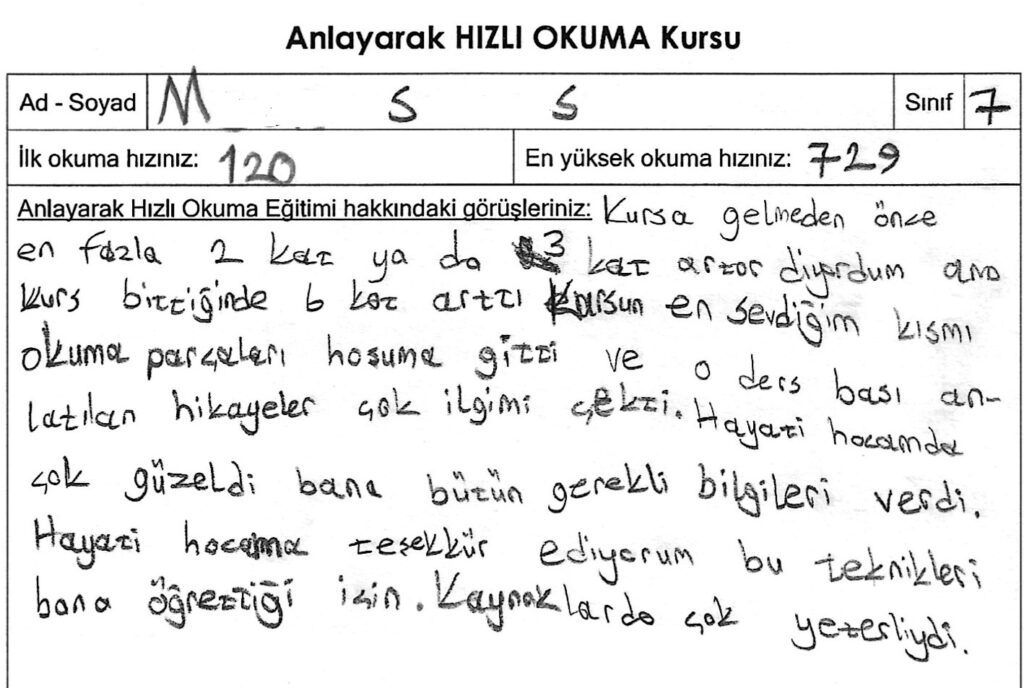 Anlayarak HIZLI OKUMA Kursu
Ad - Soyad M S S Sınıf 7
İlk okuma hızınız: 120 En yüksek okuma hızınız: 729
Anlayarak Hızlı Okuma Eğitimi hakkındaki görüşleriniz: Kursa gelmeden önce
en fazla 2 kat ya da 3 kat artar diyordum ama
kurs bittiğinde 6 kat arttı Kursun en sevdiğim kısmı
okuma parçaları hosuma gitti ve o ders bası an-
latılan hikayeler çok ilgimi çekti. Hayati hocamda
çok güzeldi bana bütün gerekli bilgileri verdi.
Hayati hocama teşekkür ediyorum bu teknikleri
bana öğrettiği için. Kaynaklarda çok yeterliydi.